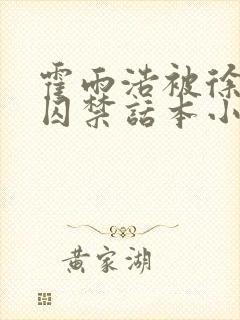 霍雨浩被徐
囚禁话本小
黄家湖